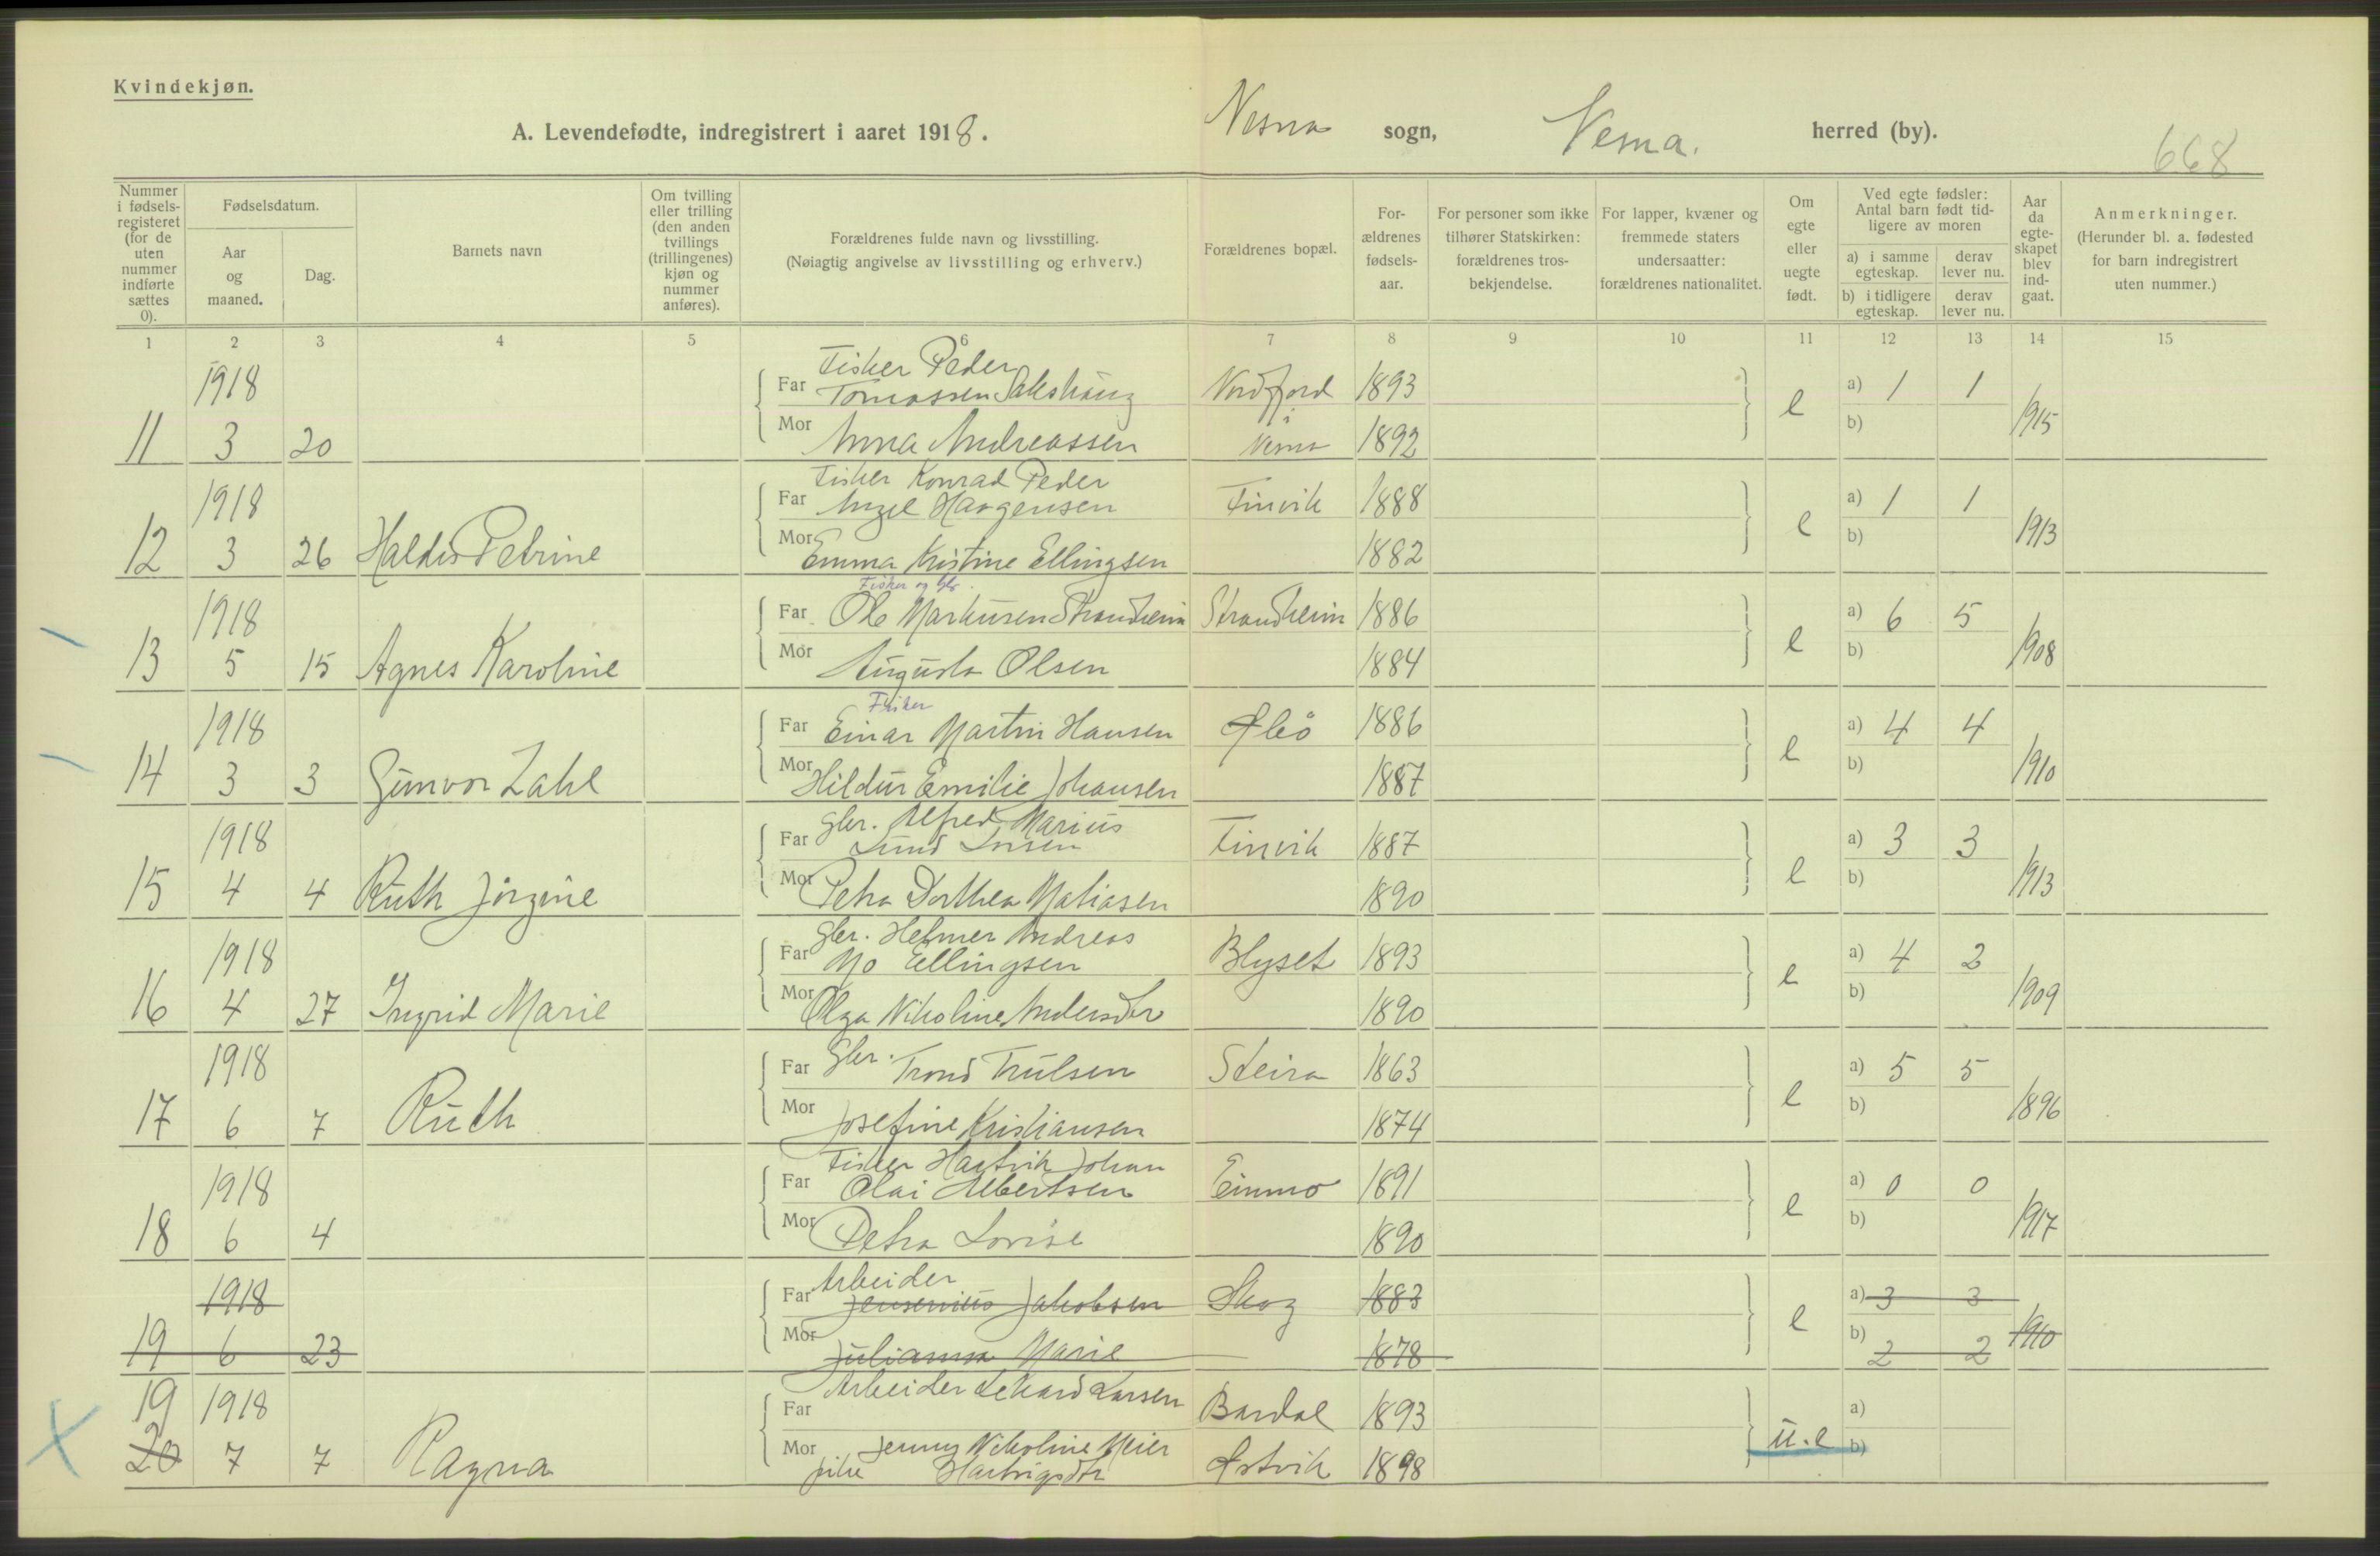 Kvindekjøn.
A. Levendefødte, indregistrert i aaret 1918. Nesna sogn, Nesna. herred (by).
668
Nummer i fødsels-registeret (for de uten nummer indførte sættes 0).
Fødselsdatum.
Aar og maaned.
Dag.
Barnets navn
Om tvilling eller trilling (den anden tvillings (trillingenes) kjøn og nummer anføres).
Forældrenes fulde navn og livsstilling.
(Nøiagtig angivelse av livsstilling og erhverv.)
Forældrenes bopæl.
For-ældrenes fødsels-aar.
For personer som ikke tilhører Statskirken: forældrenes tros-bekjendelse.
For lapper, kvæner og fremmede staters undersaatter: forældrenes nationalitet.
Om egte eller uegte født.
Ved egte fødsler: Antal barn født tid-ligere av moren
a) i samme egteskap. derav lever nu.
b) i tidligere egteskap. derav lever nu.
Aar da egte-skapet blev ind-gaat.
Anmerkninger.
(Herunder bl. a. fødested for barn indregistrert uten nummer.)
1 2 3 4 5 6 7 8 9 10 11 12 13 14 15
1918 Fisker Peder
Far Tomassen Nordfjord 1893 e a) 1 1 1915
11 3 20 Mor Anna Andreassen i Nesna 1892 b)
1918 Fisker Konrad Peder
Far Angel Haagensen Finvik 1888 e a) 1 1 1913
12 3 26 Haldis Petrine Mor Emma Kristine Ellingsen 1882 b)
Fisker og gbr.
1918 Far Ole Markusen Strandheim Strandheim 1886 e a) 6 5 1908
13 5 15 Agnes Karoline Mor Augusta Olsen 1884 b)
Fisker
1918 Far Einar Martin Hansen 1886 e a) 4 4 1910
14 3 3 Gunvor Zahl Mor Hildur Emilie Johansen 1887 b)
1918 gbr. Alfred Marius
Far Lund Larsen Finvik 1887 e a) 3 3 1913
15 4 4 Ruth Jørgine Mor Petra Dorthea Matiasen 1890 b)
1918 gbr. Helmer Andreas
Far Mo Ellingsen Blyset 1893 e a) 4 2 1909
16 4 27 Ingrid Marie Mor Olga Nikoline Andersdtr 1890 b)
1918 Far Gbr. Trond Trulsen Steira 1863 e a) 5 5 1896
17 6 7 Ruth Mor Josefine Kristiansen 1874 b)
1918 Fisker Hartvik Johan
Far Olai Albertsen Einmo 1891 e a) 0 0 1917
18 6 4 Mor Petra Lovise 1890 b)
1918 Arbeider
Far Jensenius Jakobsen Skog 1883 e a) 3 3 1910
19 6 23 Mor Julianna Marie 1878 b) 2 2
19 1918 Arbeider Larsen
Far Bardal 1893 u.e a)
20 7 7 Ragna Mor Jenny Nikoline Meier
pike Hartvigsdtr Østvik 1898 b)